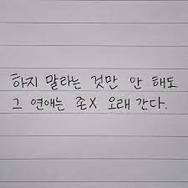 하지 말라는 것만 안 해도
그 연애는 존X 오래 간다.